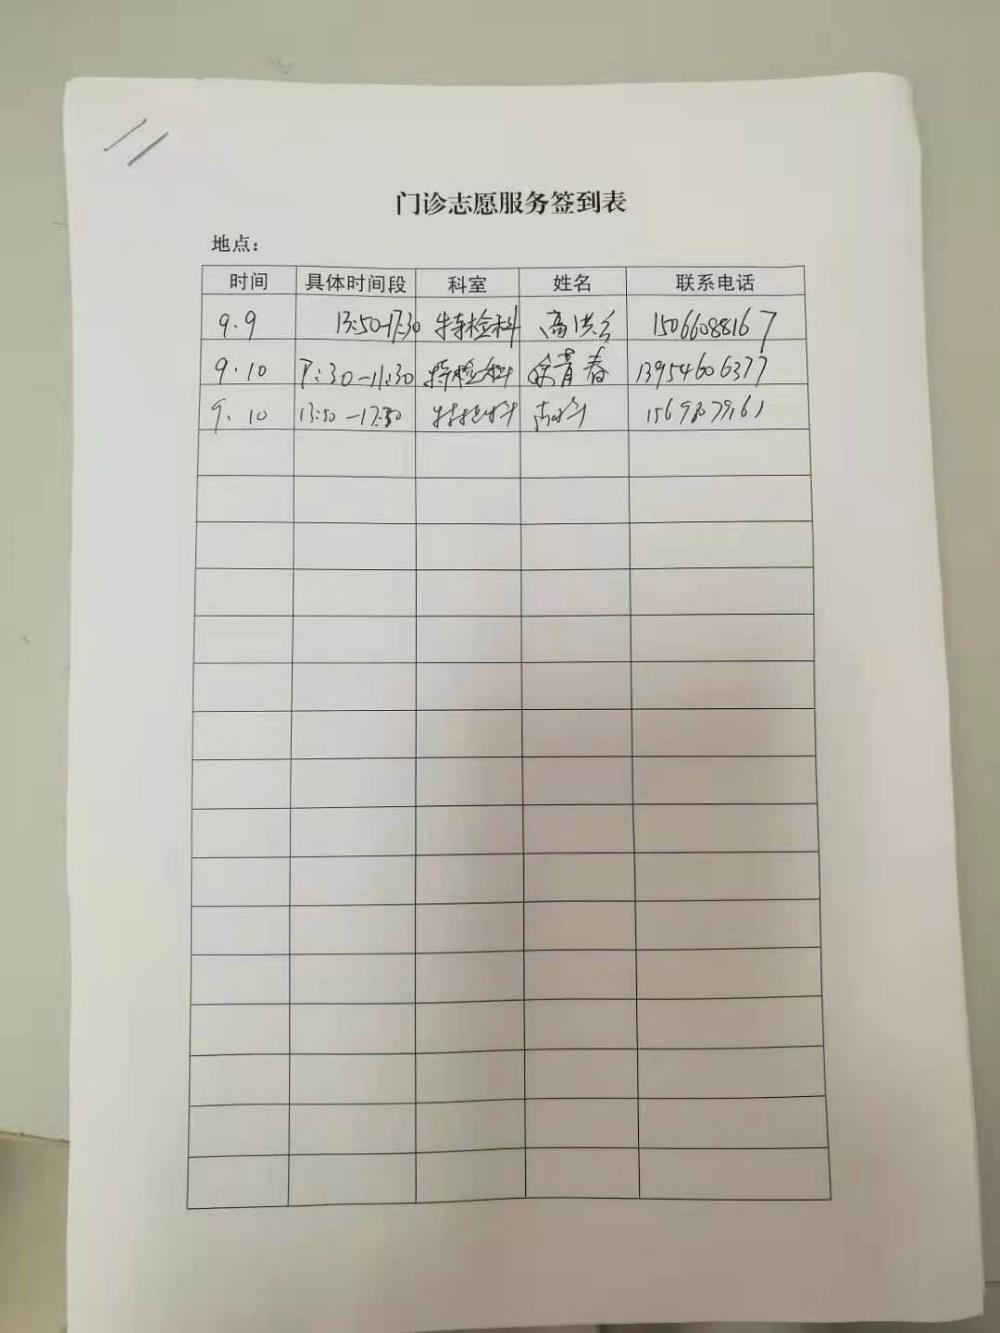 门诊志愿服务签到表
地点：
时间 具体时间段 科室 姓名 联系电话
9.9 13:50-17:30 特检科 高洪 15066088167
9.10 7:30-11:30 特检科 青春 13954606377
9.10 13:50-17:30 特检科